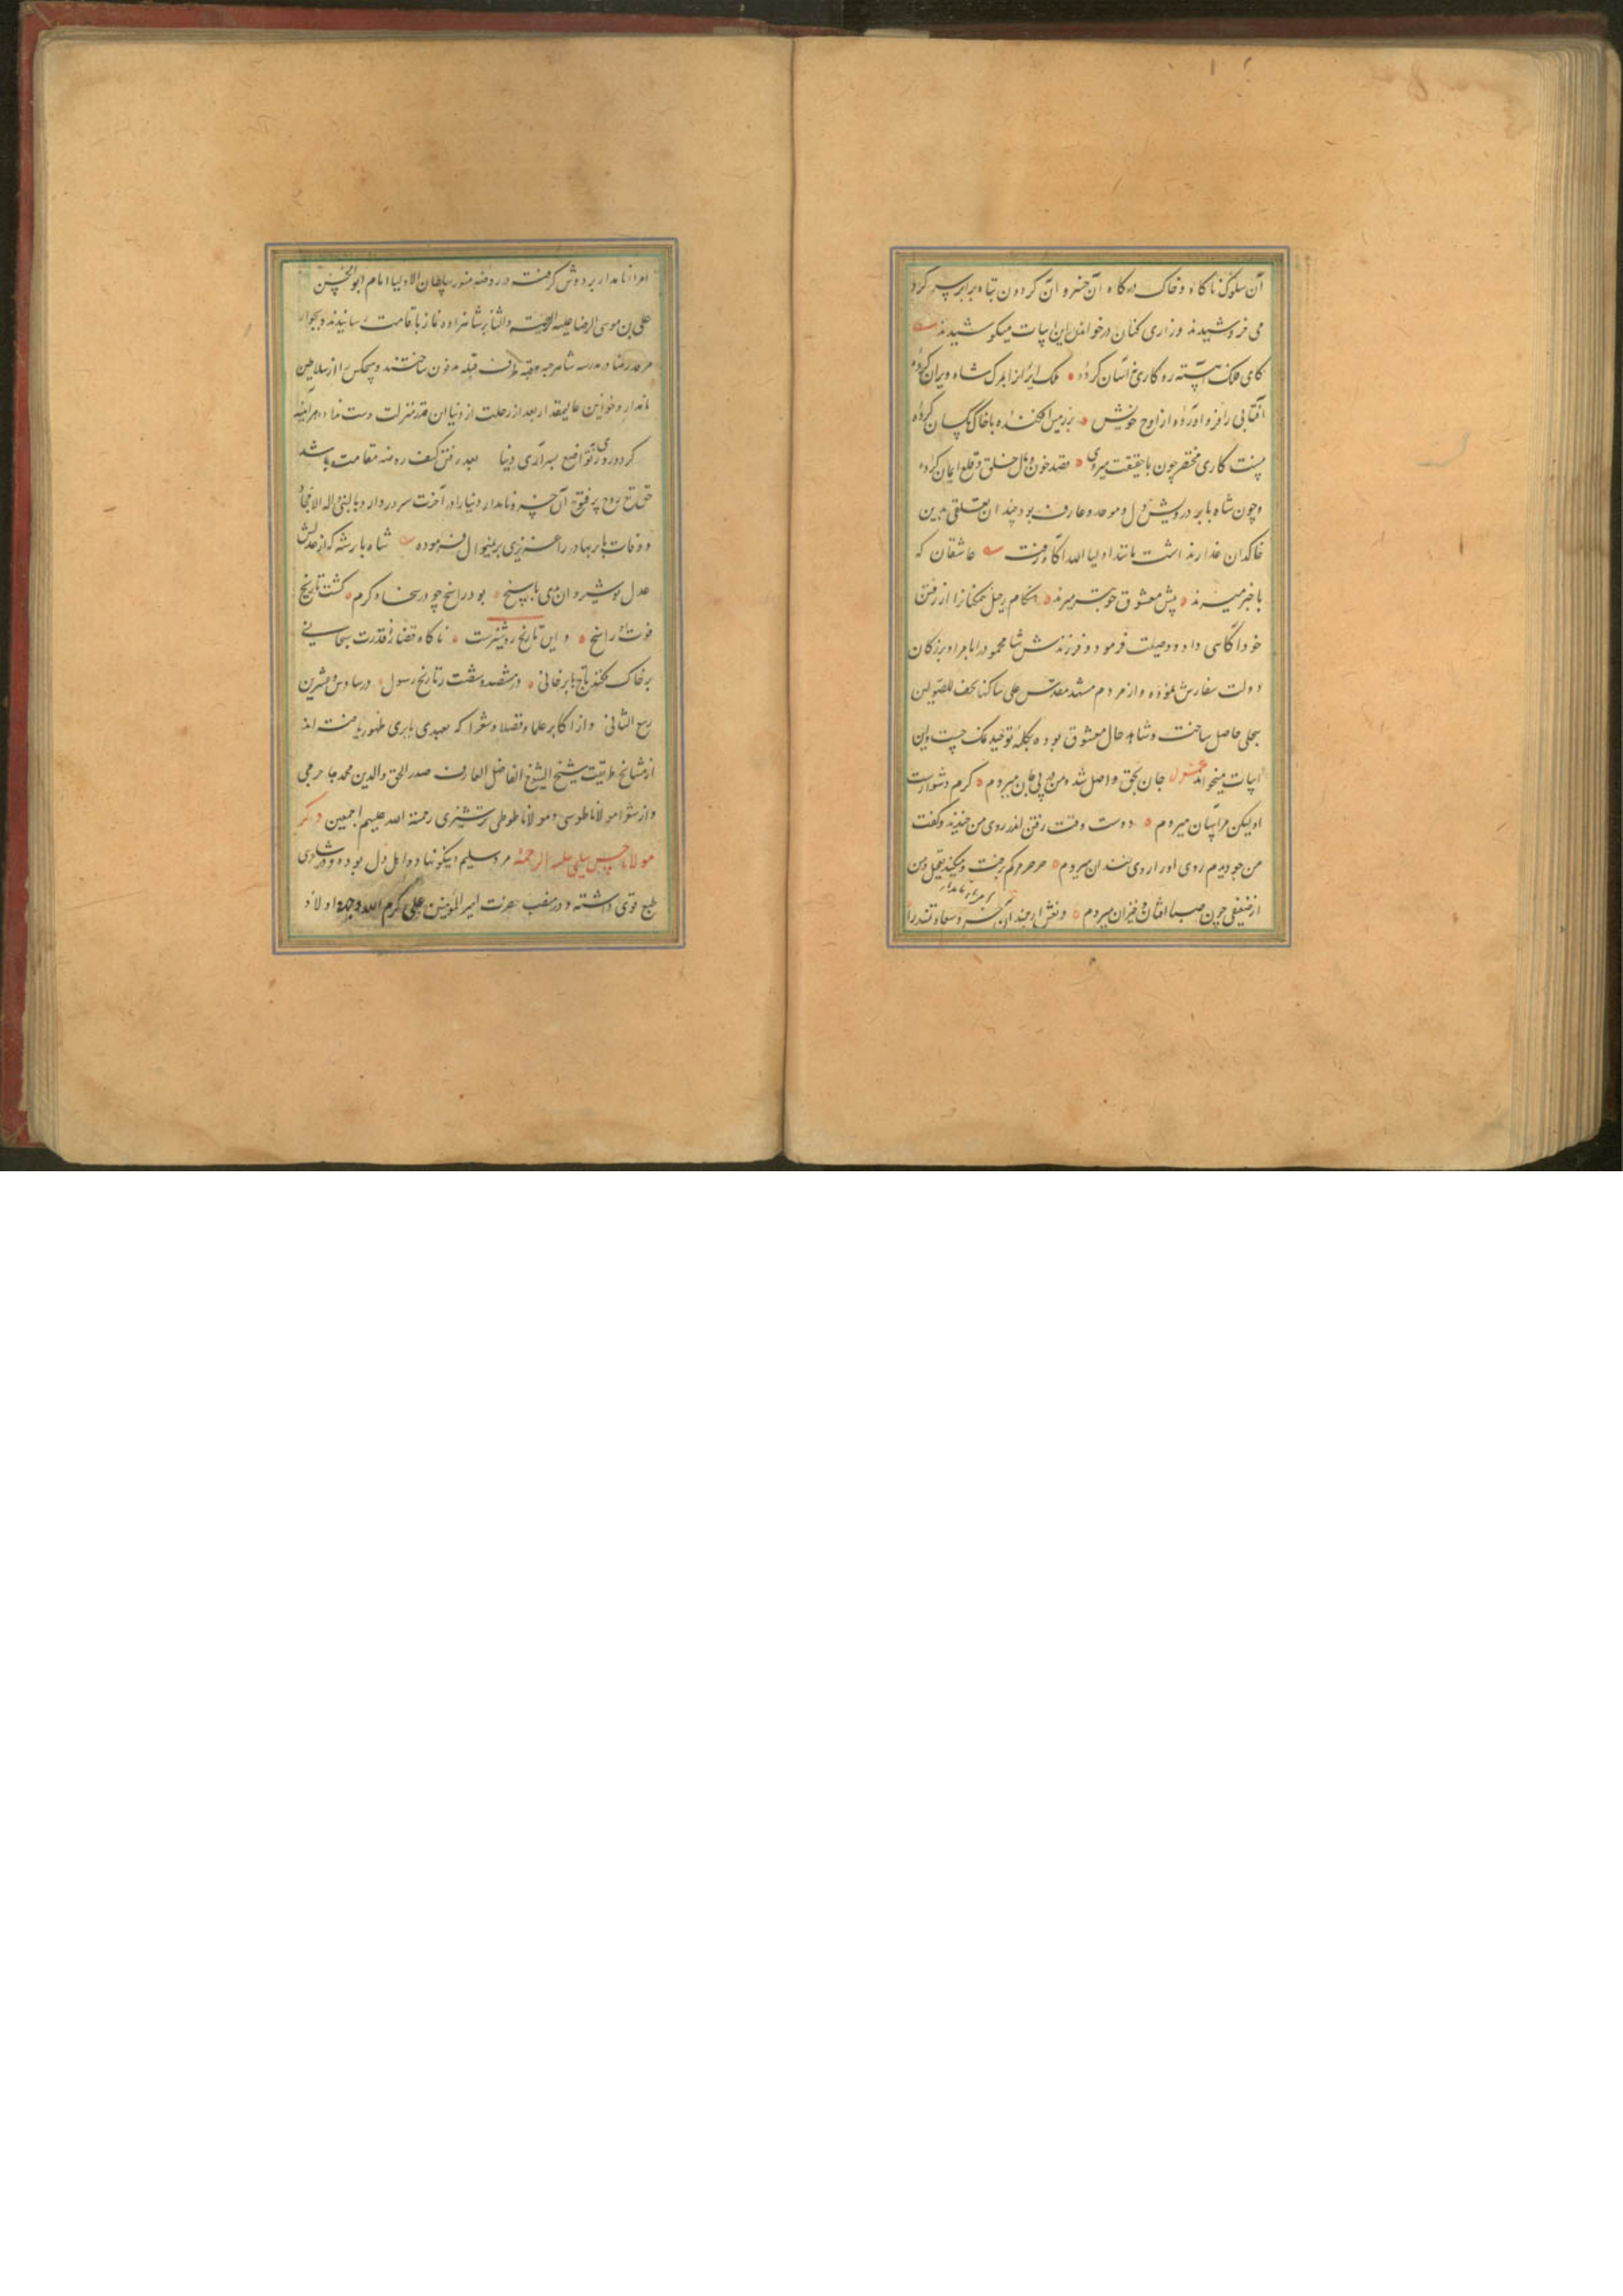 آن سلوک ناگاه و خاک درگاه آن خسرو آن گردون تباه برابر سر کرد
می خروشیدند و زاری کنان در خواندن این ابیات میکوشیدند
کای فلک آهسته رو کاری نه آسان کرده ملک ایران را بمرگ شاه ویران کرده
آفتابی را فرو آورده از اوج خویش بر زمین افکنده با خاک یکسان کرده
نیست کاری مختصر چون با حقیقت میروی قصد خون و مال خلق و قلع ایمان کرده
و چون شاه بابر درویش دل و موحد و عارف بود چندان تعلقی بدین
خاکدان غدار نداشت مانند اولیا الله آگاه رفت عاشقان که
با خبر میرند پیش معشوق خوشتر میرند هنگام رحیل همگنان را از رفتن
خود آگاهی داد و وصیت فرمود و فرزندش شاه محمود را بامرا و بزرگان
دولت سفارش نموده و از مردم مشهد مقدس علی ساکنها تحف
بحلی حاصل ساخت و شاهد حال معشوق بوده بکلمه توحید
ابیات میخواند غزل جان بحق واصل شد و من در پی جان میروم گرم دشوارست
او لیکن من آسان میروم دوست وقت رفتن اندر روی من خندید و گفت
من چو دیدم روی او را روی خندان میروم
از ضعیفی چون صبا افتان و خیزان میروم و نعش ارجمند آن خسرو سعادتمند را امرای نامدار
امرا نامدار بر دوش گرفته در روضه منور سلطان الاولیا امام ابو الحسن
علی بن موسی الرضا علیه التحیة والثنا بر شاهزاده نماز باقامت رسانیدند و بجوار
مرقد رضا در مدرسه شاهرخیه بقبه طرف قبله مدفون ساختند و هیچکس را از سلاطین
نامدار و خواقین عالیمقدار بعد از رحلت از دنیا این قدر منزلت دست نداده هر آینه
گر دوری ز تواضع بسر آری دنیا بعد رفتن کنف روضه مقامت باشد
حق تع روح پر فتوح آن خسرو نامدار دنیا را در آخرت مسرور دارد بالنبی واله الامجاد
و وفات بابر بهادر را عزیزی برینمنوال فرموده شاه بابر شه که از عدلش
عدل نوشیروان بدی پاسخ بود راسخ چو در سخا و کرم گشت تاریخ
فوت او راسخ و این تاریخ روشنترست ناگاه قضا ز قدرت سبحانی
بر خاک فکند تاج بابر خانی در هشتصد و شصت ز تاریخ رسول در سادس و عشرین
ربیع الثانی و از اکابر علما و فضلا و شعرا که بعهدی بابری ظهور یافته اند
از مشایخ طریقت شیخ الشیوخ الفاضل العارف صدر الحق والدین محمد جاجرمی
و از شعرا مولانا طوسی و مولانا طوطی ترشیزی رحمة الله علیهم اجمعین ذکر
مولانا حسن سلیمی علیه الرحمة مرد سلیم و نیکو نهاد و اهل دل بوده و در شاعری
طبع قوی داشته و در منقب حضرت امیر المؤمنین علی کرم الله وجهه و اولاد